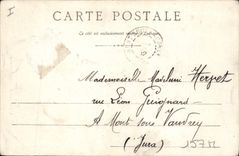 I
CARTE POSTALE
Ce côté est exclusivement réservé à l'adresse
Mademoiselle Madeleine Herpet
rue Léon Guignard
A Mont sous Vaudrey
(Jura)